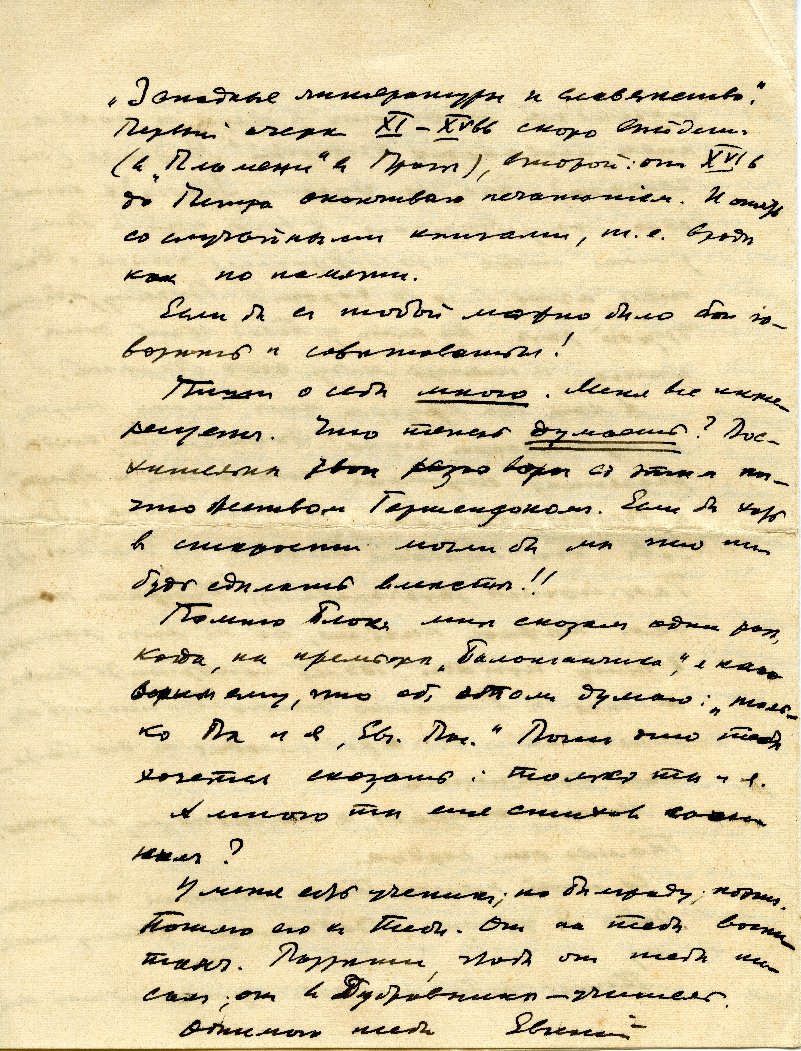 „Западные литературы и славянство“.
Первый очерк XI–XV вв скоро выйдет
(в „Пламени“ в Праге), второй: от XVI в
до Петра оканчиваю печатанием. И опять
со случайными книгами, т.е. вроде
как по памяти.
Если бы с тобой можно было бы го-
ворить и советоваться!
Пиши о себе много. Меня все инте-
ресует. Что теперь думаешь? Вос-
хитительны твои разговоры с этим ни-
чтожеством Гершензоном. Если бы хоть
в старости могли бы мы что ни
будь сделать вместе!!
Помню Блок мне сказал один раз,
когда, на премьере „Балаганчика“, я
ему, что об этом думаю: „толь-
ко Вы и я, Евг. Вас.“ После это тебе
хочется сказать: только ты и я.
А много ты еще стихов
?
У меня есть ученик; но
Пошлю его к тебе. Он на тебе воспи-
тан. Разреши, чтобы он тебе пи-
сал; он в Дубровнике – учитель.
Обнимаю тебя Евгений